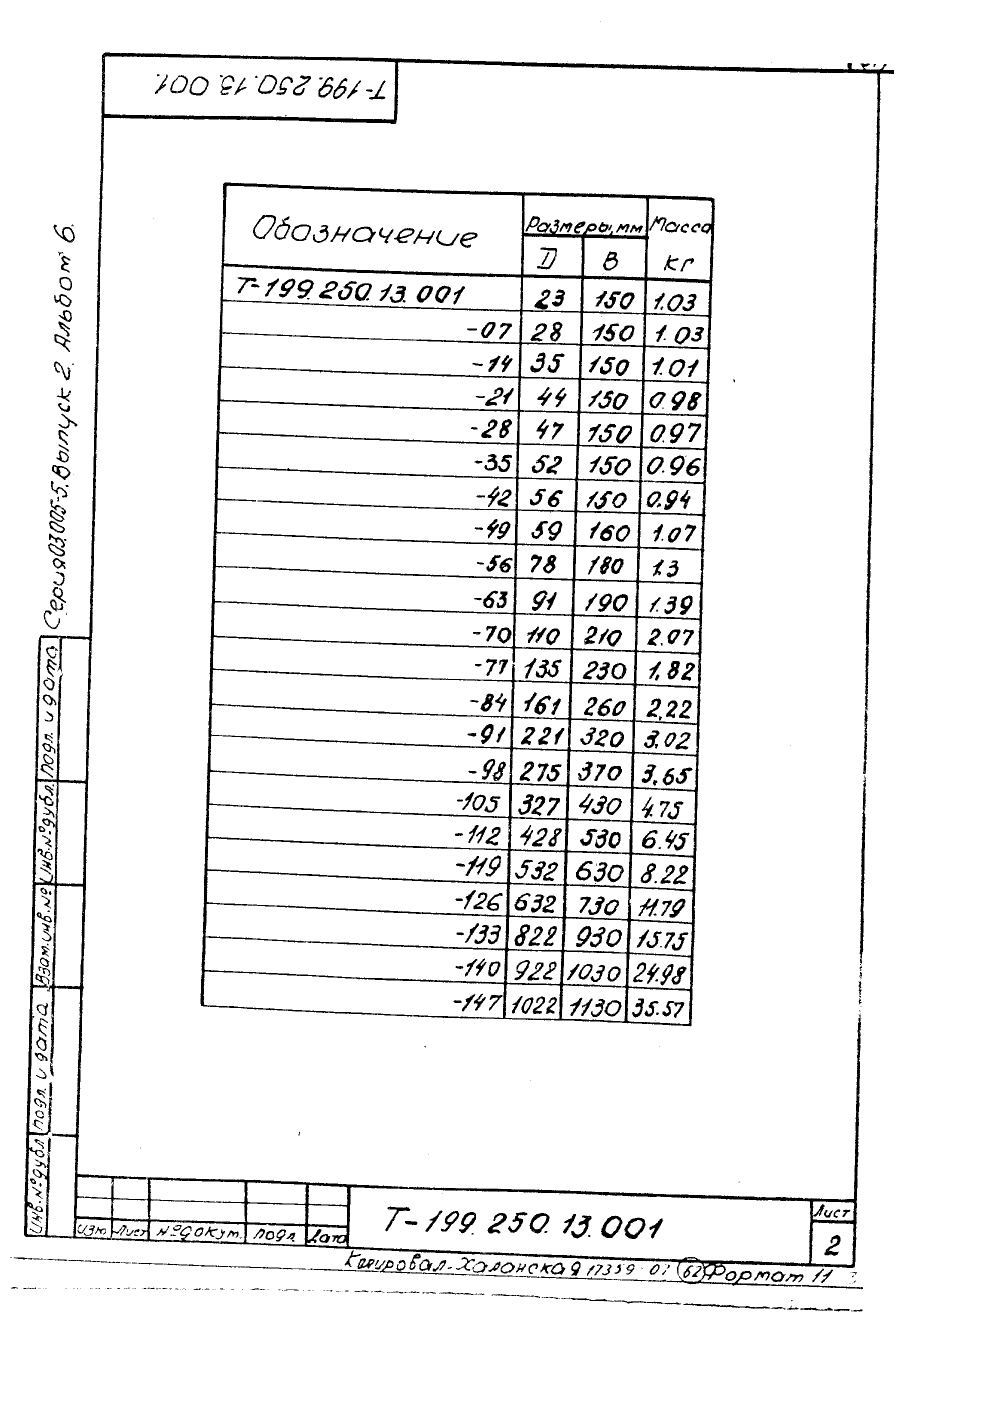 Т-199.250.13.001.
Серия 03.005-5. Выпуск 2. Альбом 6.
Обозначение Размеры, мм Масса кг
D В
Т-199.250.13.001 23 150 1.03
-07 28 150 1.03
-14 35 150 1.01
-21 44 150 0.98
-28 47 150 0.97
-35 52 150 0.96
-42 56 150 0.94
-49 59 160 1.07
-56 78 180 1.3
-63 91 190 1.39
-70 110 210 2.07
-77 135 230 1,82
-84 161 260 2,22
-91 221 320 3,02
-98 275 370 3,65
-105 327 430 4.75
-112 428 530 6.45
-119 532 630 8.22
-126 632 730 11.79
-133 822 930 15.75
-140 922 1030 24.98
-147 1022 1130 35.57
Подп. и дата
Инв.№дубл.
Взам.инв.№
Подп. и дата
Инв.№дубл
Изм. Лист №докум. подп Дата
Т-199.250.13.001
Лист
2
Копировал-Халанская 17359 62 Формат 11